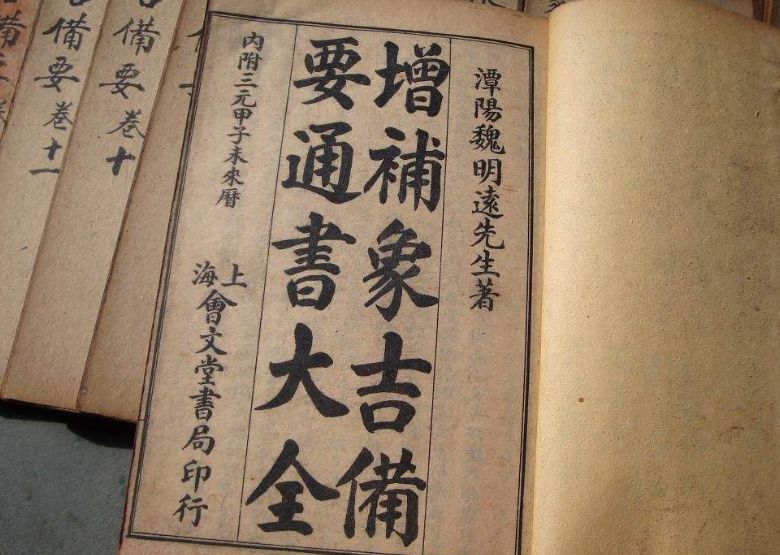 潭陽魏明遠先生著
增補象吉備
要通書大全
內附三元甲子未來曆
上海會文堂書局印行
備要 卷十
備要 卷十一